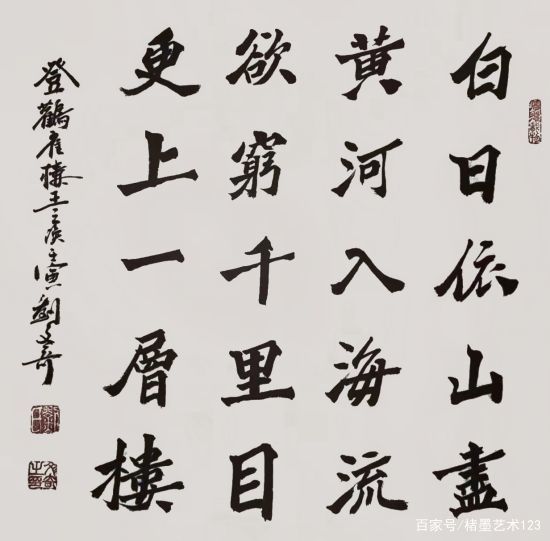 白日依山盡
黄河入海流
欲窮千里目
更上一層樓
登鸛雀樓王之渙壬寅劉文奇
百家号/楮墨艺术123